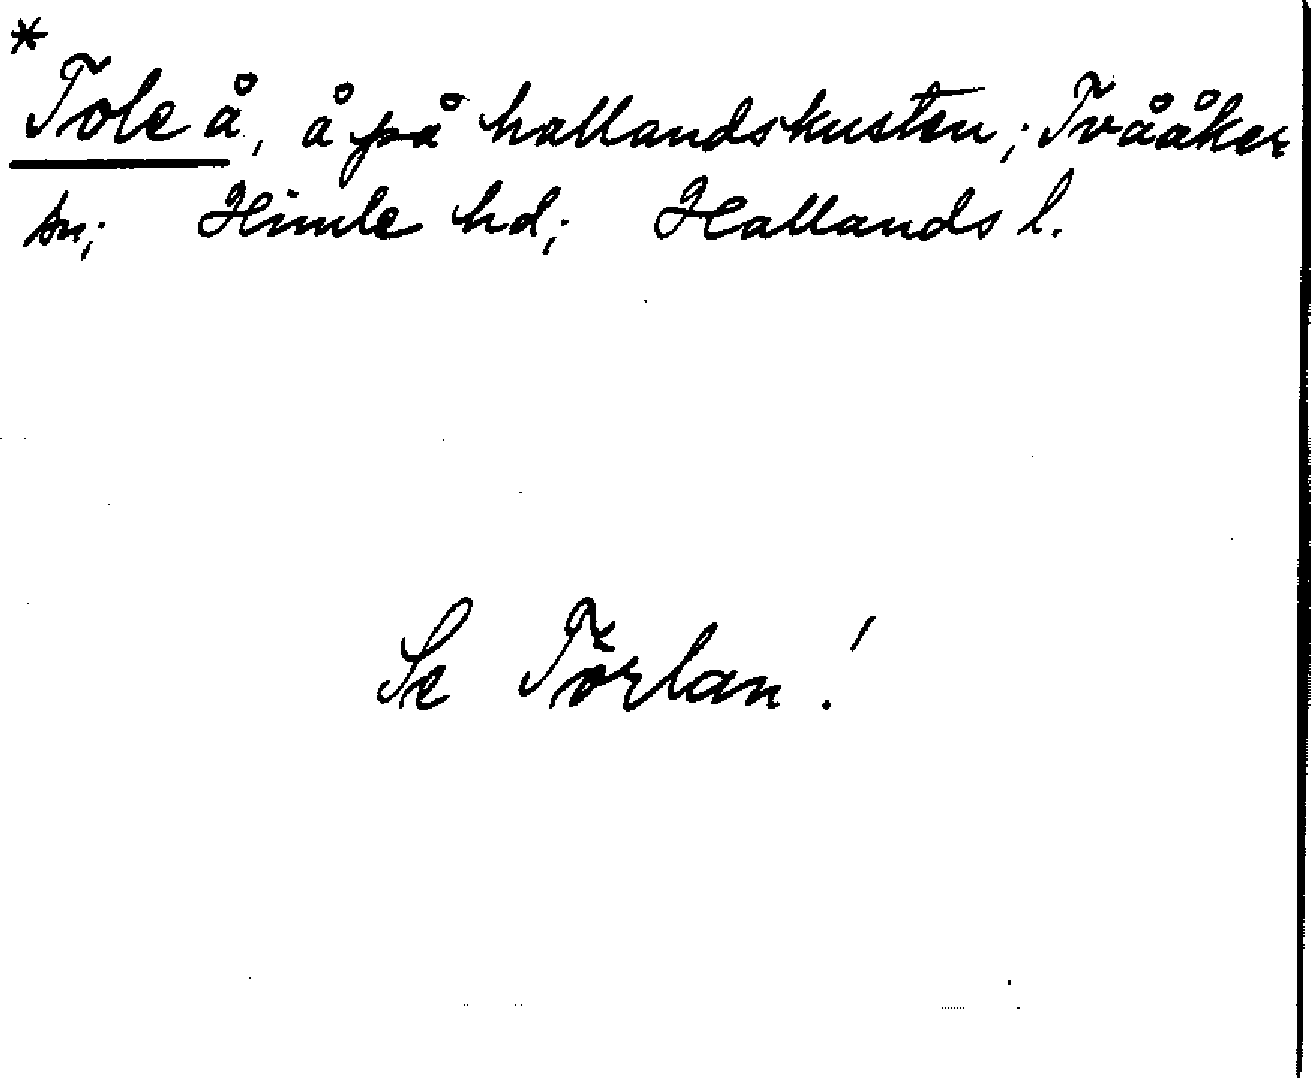 *
Tole å, å på hallandskusten; Tvååker
sn; Himle hd; Hallands l.
Se Törlan!